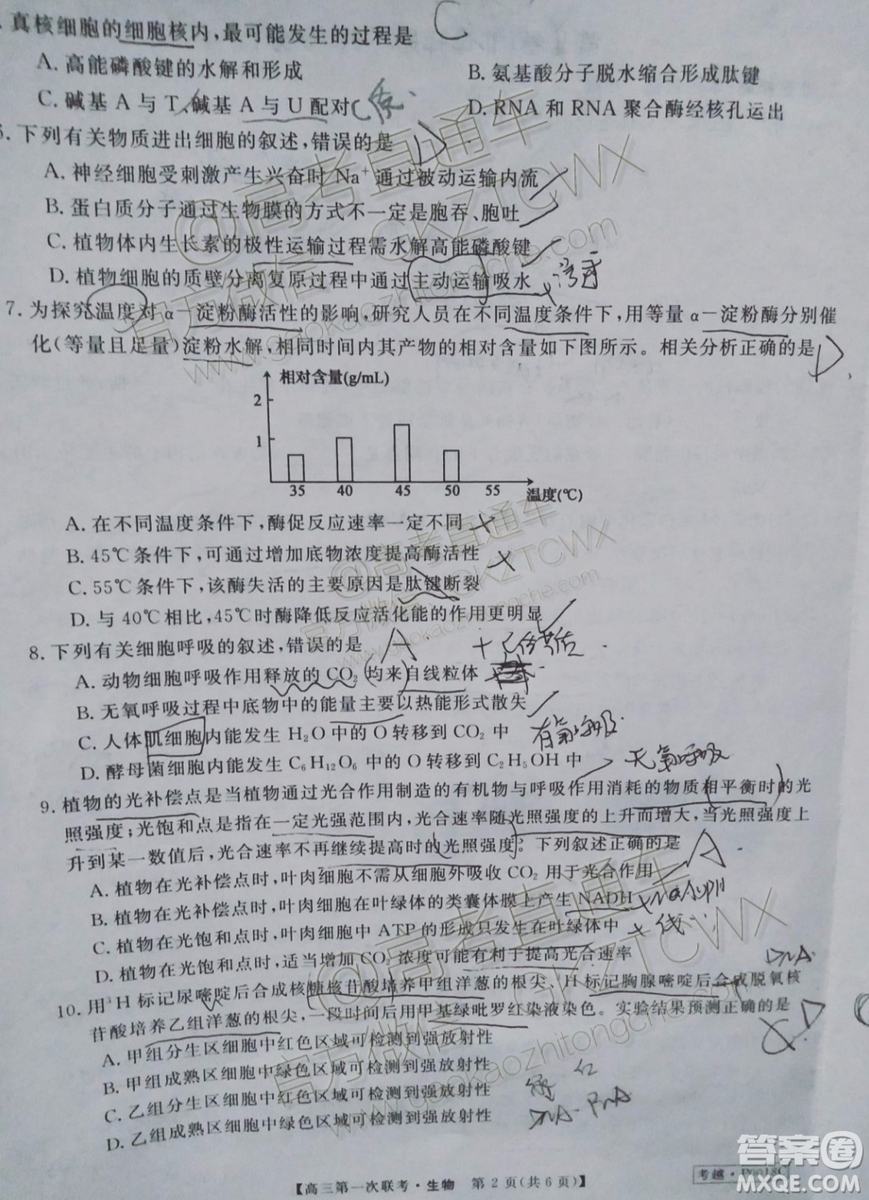 真核细胞的细胞核内，最可能发生的过程是 C
A. 高能磷酸键的水解和形成 B. 氨基酸分子脱水缩合形成肽键
C. 碱基 A 与 T、碱基 A 与 U 配对 D. RNA 和 RNA 聚合酶经核孔运出
6. 下列有关物质进出细胞的叙述，错误的是 D
A. 神经细胞受刺激产生兴奋时 Na⁺ 通过被动运输内流
B. 蛋白质分子通过生物膜的方式不一定是胞吞、胞吐
C. 植物体内生长素的极性运输过程需水解高能磷酸键
D. 植物细胞的质壁分离复原过程中通过主动运输吸水
7. 为探究温度对 α－淀粉酶活性的影响，研究人员在不同温度条件下，用等量 α－淀粉酶分别催
化(等量且足量)淀粉水解，相同时间内其产物的相对含量如下图所示。相关分析正确的是 D
相对含量(g/mL)
2
1
35 40 45 50 55 温度(℃)
A. 在不同温度条件下，酶促反应速率一定不同
B. 45℃条件下，可通过增加底物浓度提高酶活性
C. 55℃条件下，该酶失活的主要原因是肽键断裂
D. 与 40℃相比，45℃时酶降低反应活化能的作用更明显
8. 下列有关细胞呼吸的叙述，错误的是 A
A. 动物细胞呼吸作用释放的 CO₂ 均来自线粒体
B. 无氧呼吸过程中底物中的能量主要以热能形式散失
C. 人体肌细胞内能发生 H₂O 中的 O 转移到 CO₂ 中 有氧呼吸
D. 酵母菌细胞内能发生 C₆H₁₂O₆ 中的 O 转移到 C₂H₅OH 中 无氧呼吸
9. 植物的光补偿点是当植物通过光合作用制造的有机物与呼吸作用消耗的物质相平衡时的光
照强度；光饱和点是指在一定光强范围内，光合速率随光照强度的上升而增大，当光照强度上
升到某一数值后，光合速率不再继续提高时的光照强度。下列叙述正确的是 A
A. 植物在光补偿点时，叶肉细胞不需从细胞外吸收 CO₂ 用于光合作用
B. 植物在光补偿点时，叶肉细胞在叶绿体的类囊体膜上产生 NADH
C. 植物在光饱和点时，叶肉细胞中 ATP 的形成只发生在叶绿体中
D. 植物在光饱和点时，适当增加 CO₂ 浓度可能有利于提高光合速率
DNA
10. 用 ³H 标记尿嘧啶后合成核糖核苷酸培养甲组洋葱的根尖、³H 标记胸腺嘧啶后合成脱氧核
苷酸培养乙组洋葱的根尖，一段时间后用甲基绿吡罗红染液染色。实验结果预测正确的是 D
A. 甲组分生区细胞中红色区域可检测到强放射性
B. 甲组成熟区细胞中绿色区域可检测到强放射性
C. 乙组分生区细胞中红色区域可检测到强放射性 绿 红
D. 乙组成熟区细胞中绿色区域可检测到强放射性 DNA-RNA
【高三第一次联考·生物 第 2 页(共 6 页)】
@高考直通车
官方微信:GKZTCWX
gaokaozhitongche.com
答案圈
MXQE.COM